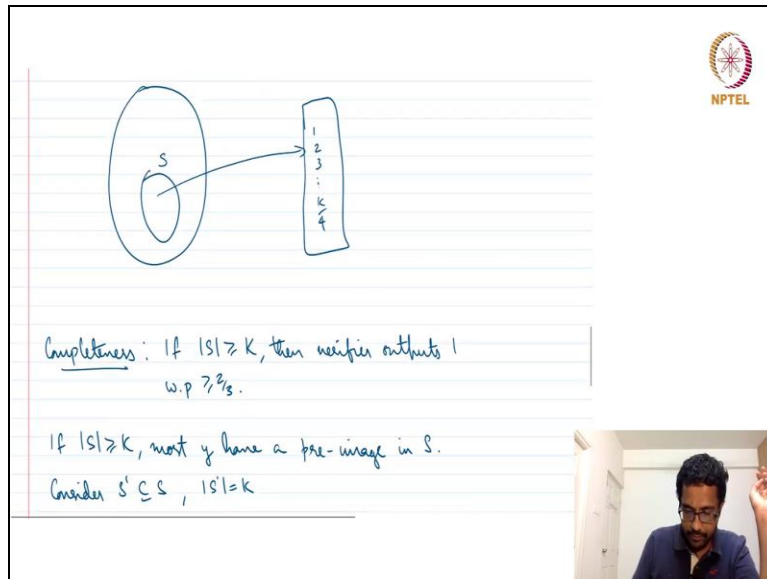 NPTEL
S
1
2
3
⋮
K/4
Completeness: If |S| ≥ K, then verifier outputs 1
w.p ≥ 2/3.
If |S| ≥ K, most y have a pre-image in S.
Consider S' ⊆ S, |S'| = K